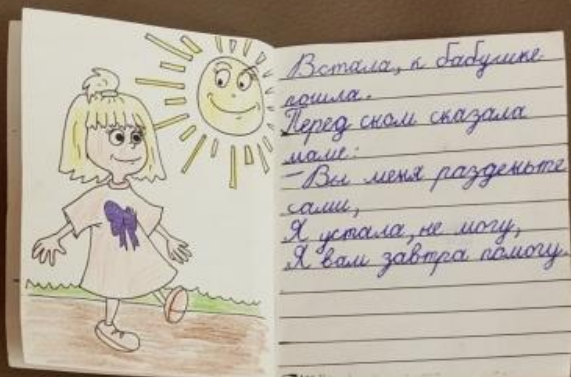 Встала, к бабушке
пошла.
Перед сном сказала
маме:
- Вы меня разденьте
сами,
Я устала, не могу,
Я вам завтра помогу.